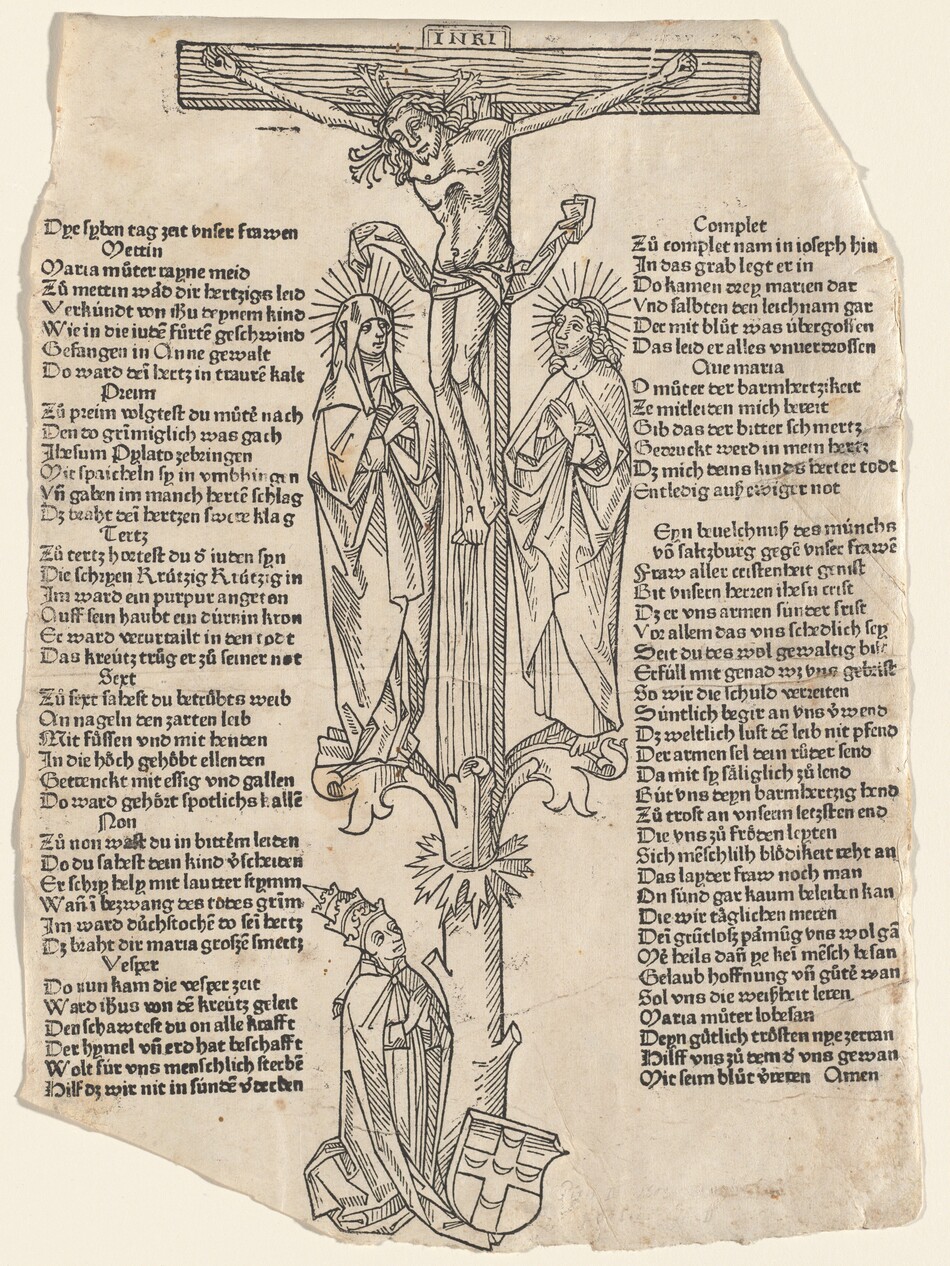 INRI
Dye syben tag zeit vnser frawen
Mettin
Maria můter rayne meid
Zů mettin wād dir hertzigs leid
Verkündt von ihu deynem kind
Wie in die iudē fürtē geschwind
Gefangen in Anne gewalt
Do ward deī hertz in traurē kalt
Preim
Zů preim volgtest du můtē nach
Den do grīmiglich was gach
Jhesum Pylato zebringen
Mit spaicheln sy in vmbhingen
Vn̄ gaben im manch hertē schlag
Dz braht deī hertzen swere klag
Tertz
Zů tertz hortest du d̄ iuden syn
Die schryen Krützig Krützig in
Im ward ein purpur angeton
Auff sein haubt ein dürnin kron
Er ward verurtailt in den todt
Das kreütz trůg er zů seiner not
Sext
Zů sext sahest du betrůbts weib
An nageln den zarten leib
Mit fůssen vnd mit henden
In die hőch gehőbt ellenden
Getrenckt mit essig vnd gallen
Do ward gehőrt spotlichs kallē
Non
Zů non wast du in bittērm leiden
Do du sahest dein kind v̄scheiden
Er schry hely mit lautter stymm
Wan̄ ī bezwang des todes grīm
Im ward důchstochē do seī hertz
Dz braht dir maria groszē smertz
Vesper
Do nun kam die vesper zeit
Ward ihus von dē kreütz geleit
Den schawtest du on alle krafft
Der hymel vn̄ erd hat beschafft
Wolt für vns menschlich sterbē
Hilf dz wir nit in sündē v̄derben
Complet
Zů complet nam in ioseph hin
In das grab legt er in
Do kamen drey marien dar
Vnd salbten den leichnam gar
Der mit blůt was übergossen
Das leid er alles vnuerdrossen
Aue maria
O můter der barmhertzikeit
Ze mitleiden mich bereit
Gib das der bitter schmertz
Getruckt werd in mein hertz
Dz mich deins kinds herter todt
Entledig ausz ewiger not
Eyn beuelchnusz des münchs
vō saltzburg gegē vnser frawē
Fraw aller cristenheit genist
Bit vnsern herren ihesu crist
Dz er vns armen sünder frist
Vor allem das vns schedlich sey
Seit du des wol gewaltig bist
Erfüll mit genad wz vns gebrist
So wir die schuld verreiten
Süntlich begir an vns v̄wend
Dz weltlich lust dē leib nit pfend
Der armen sel dein růder send
Da mit sy säliglich zů lend
Büt vns deyn barmhertzig hend
Zů trost an vnserm letzsten end
Die vns zů frőden leyten
Sich mēschlilh blődikeit reht an
Das layder fraw noch man
On sünd gar kaum beleiben kan
Die wir täglichen meren
Deī grůtlosz parmūg vns wol gā
Mē heils dan̄ ye keī mēsch besan
Gelaub hoffnung vn̄ gůtē wan
Sol vns die weiszheit leren
Maria můter lobesan
Deyn gůtlich trősten nye zerran
Hilff vns zů dem d̄ vns gewan
Mit seim blůt v̄reren Amen